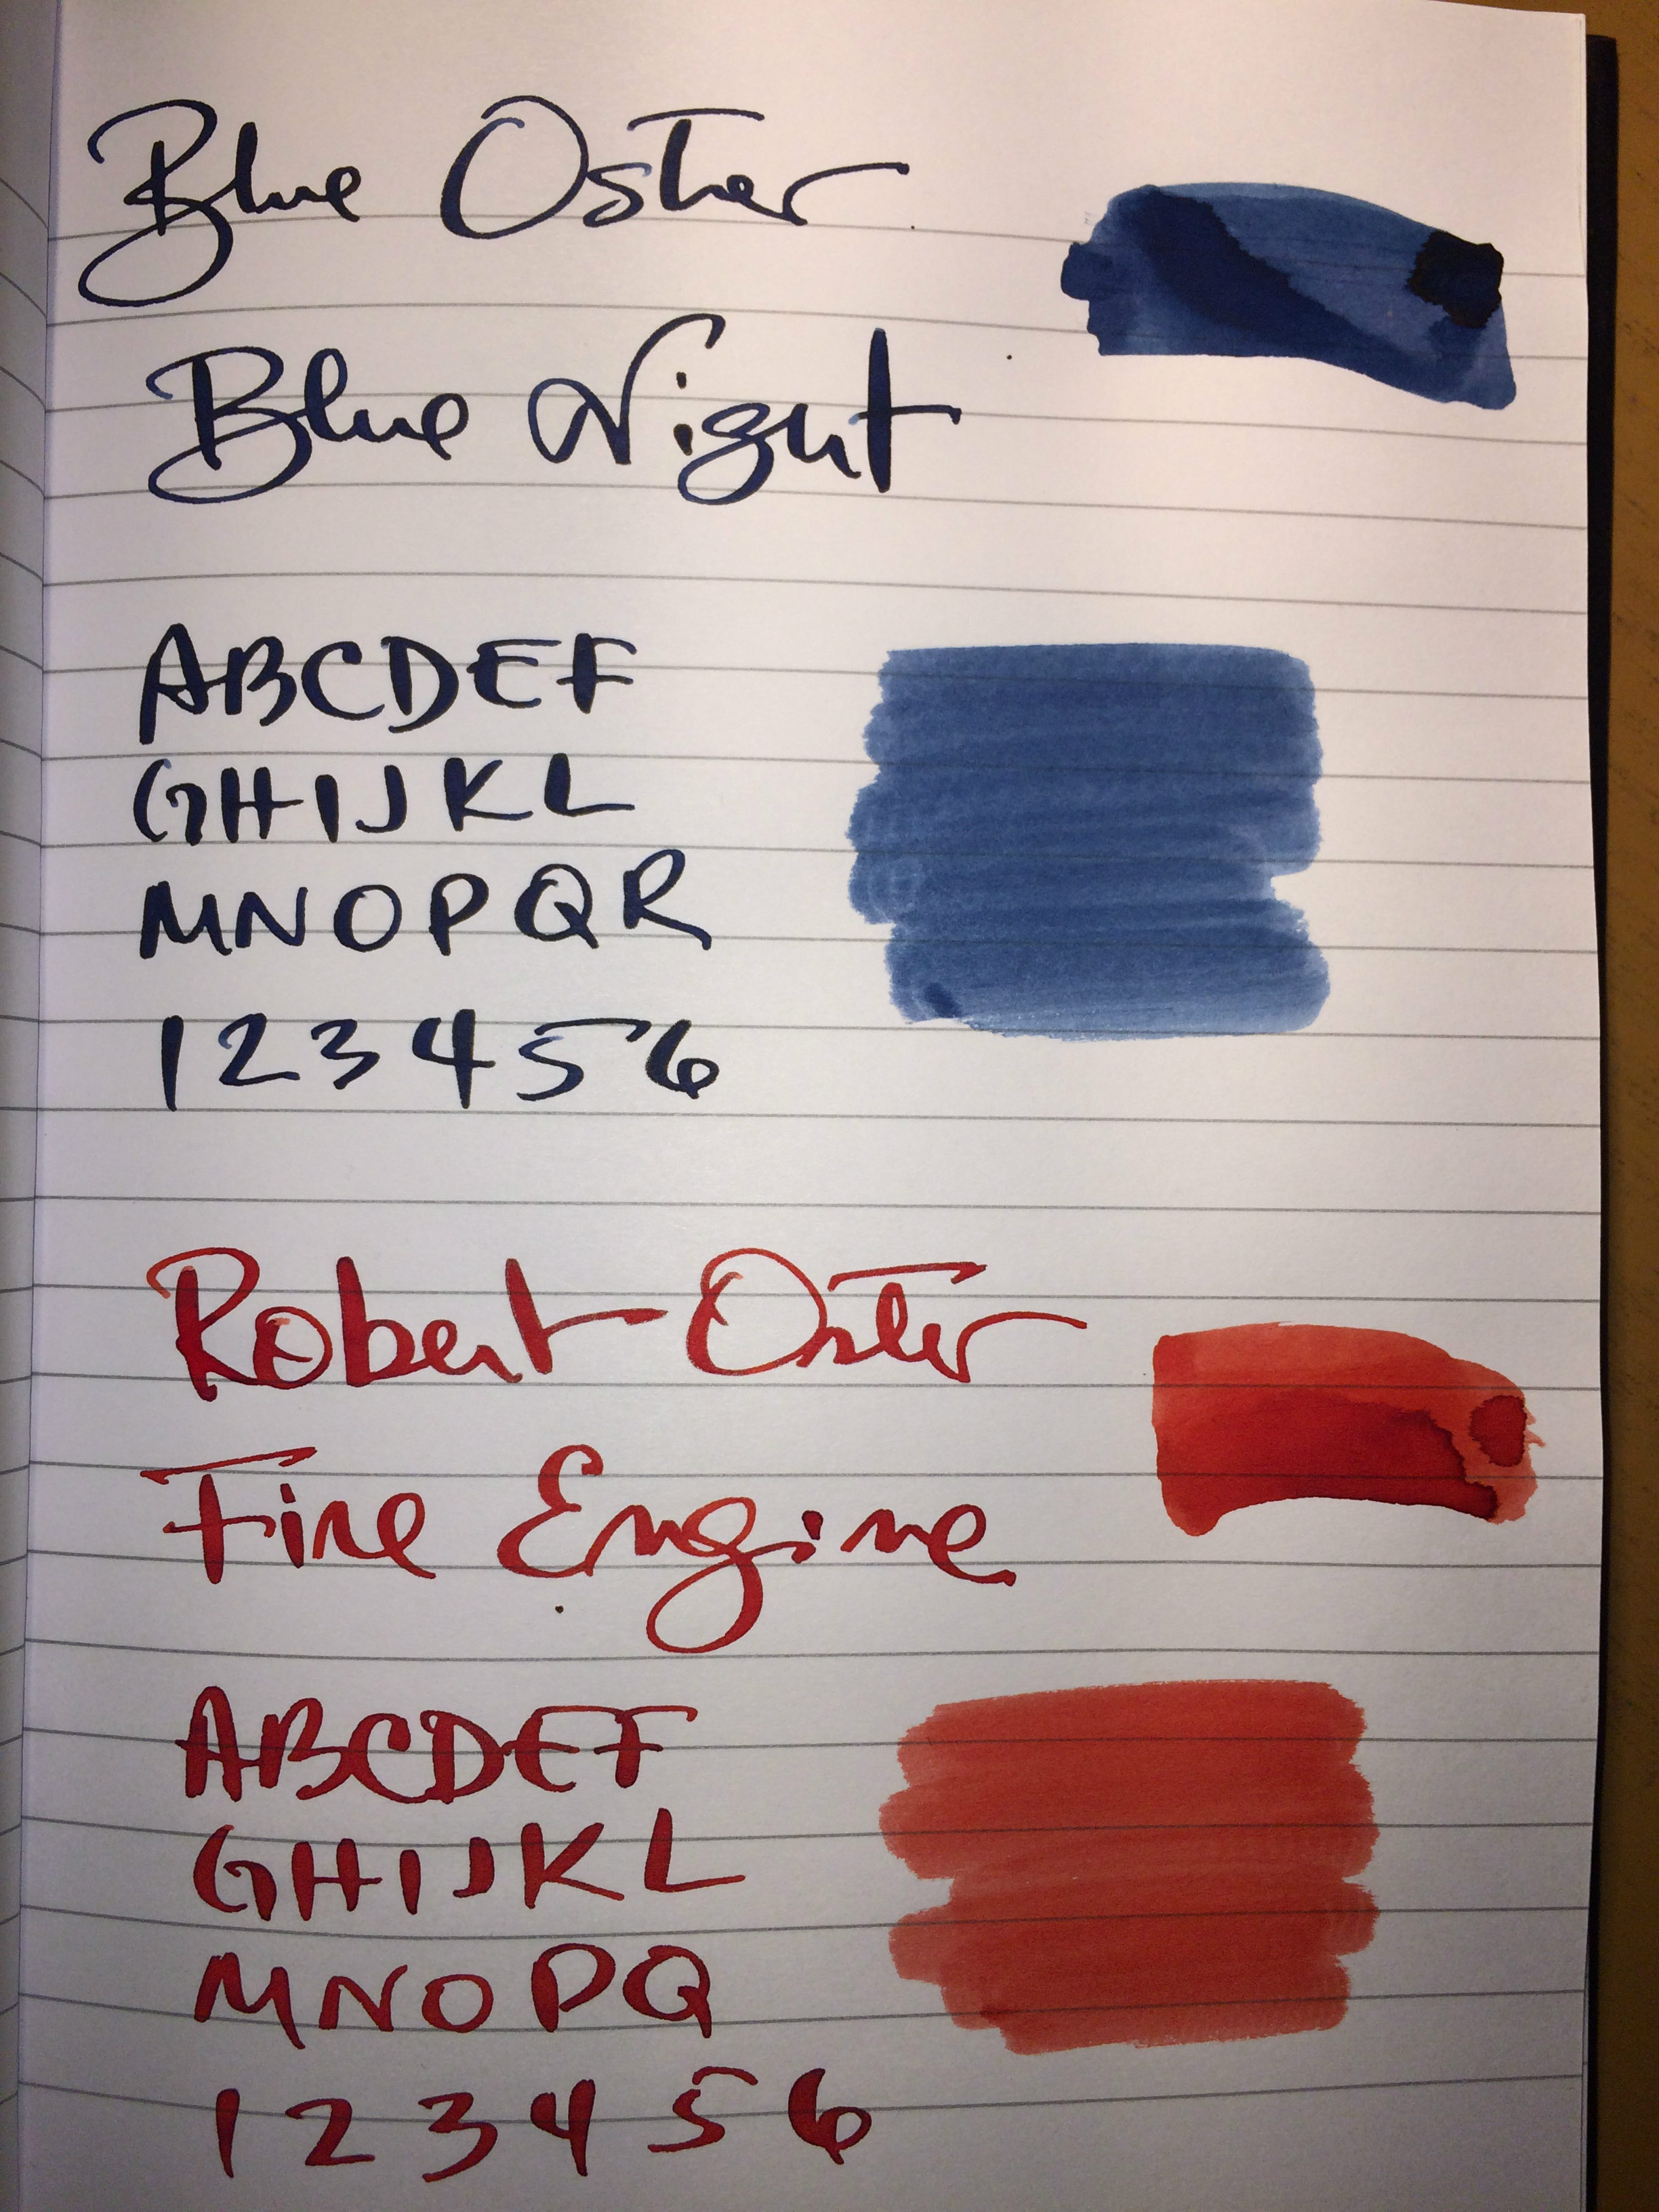 Blue Oster
Blue Night
ABCDEF
GHIJKL
MNOPQR
123456
Robert Oster
Fire Engine
ABCDEF
GHIJKL
MNOPQ
123456